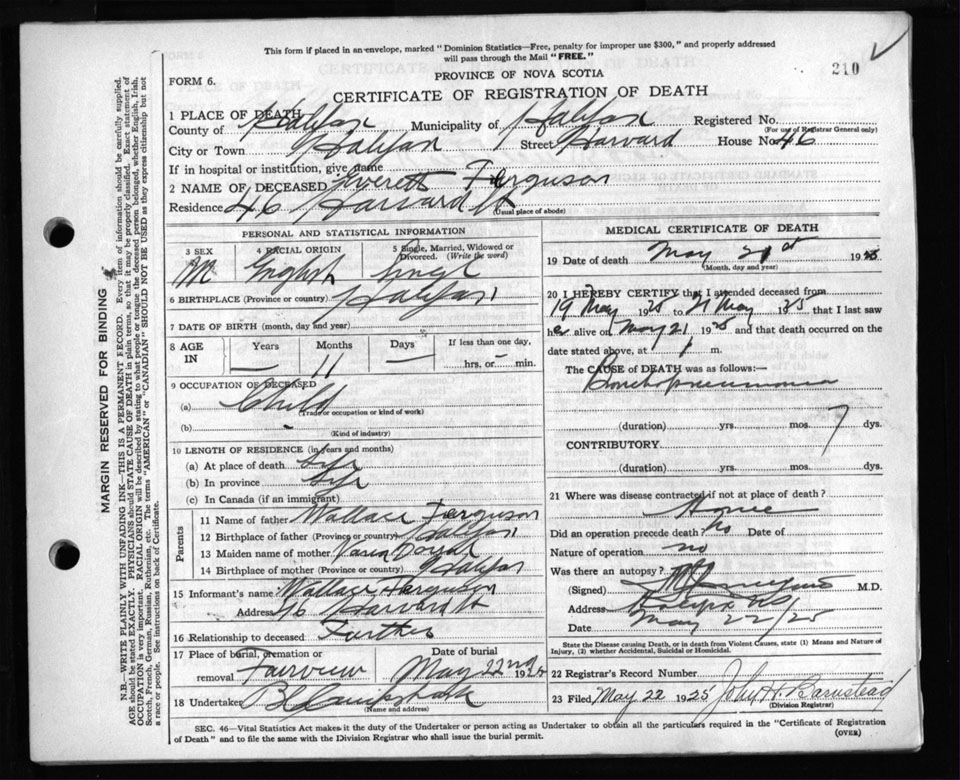 This form if placed in an envelope, marked "Dominion Statistics—Free, penalty for improper use $300," and properly addressed
will pass through the Mail "FREE."
210
FORM 6.
PROVINCE OF NOVA SCOTIA
CERTIFICATE OF REGISTRATION OF DEATH
1 PLACE OF DEATH
County of Halifax Municipality of Halifax Registered No.
(For use of Registrar General only)
City or Town Halifax Street Harvard House No. 46
If in hospital or institution, give name
2 NAME OF DECEASED Everett Ferguson
Residence 46 Harvard St
(Usual place of abode)
PERSONAL AND STATISTICAL INFORMATION
3 SEX 4 RACIAL ORIGIN 5 Single, Married, Widowed or Divorced. (Write the word)
M English Single
6 BIRTHPLACE (Province or country) Halifax
7 DATE OF BIRTH (month, day and year)
8 AGE IN Years Months Days If less than one day,
— 11 — hrs. or — min.
9 OCCUPATION OF DECEASED
(a) Child
(Trade or occupation or kind of work)
(b) -
(Kind of industry)
10 LENGTH OF RESIDENCE (in years and months)
(a) At place of death Life
(b) In province Life
(c) In Canada (if an immigrant)
Parents
11 Name of father Wallace Ferguson
12 Birthplace of father (Province or country) Halifax
13 Maiden name of mother
14 Birthplace of mother (Province or country) Halifax
15 Informant's name Wallace Ferguson
Address 46 Harvard St
16 Relationship to deceased Farther
17 Place of burial, cremation or removal Fairview
Date of burial May 22nd 1925
18 Undertaker
(Name and address)
MEDICAL CERTIFICATE OF DEATH
19 Date of death May 21st 1925
(Month, day and year)
20 I HEREBY CERTIFY that I attended deceased from
19 May 1925 to 21 May 1925 that I last saw
h alive on May 21 1925 and that death occurred on the
date stated above, at 1 m.
The CAUSE of DEATH was as follows:—
Bronchopneumonia
(duration) yrs. mos. 7 dys.
CONTRIBUTORY
(duration) yrs. mos. dys.
21 Where was disease contracted if not at place of death?
Home
Did an operation precede death? no Date of
Nature of operation no
Was there an autopsy?
(Signed) M.D.
Address Halifax NS
Date May 22/25
State the Disease causing Death, or in death from Violent Causes, state (1) Means and Nature of
Injury, (2) whether Accidental, Suicidal or Homicidal.
22 Registrar's Record Number
23 Filed May 22 1925 John H. Barnstead
(Division Registrar)
SEC. 46—Vital Statistics Act makes it the duty of the Undertaker or person acting as Undertaker to obtain all the particulars required in the "Certificate of Registration
of Death" and to file the same with the Division Registrar who shall issue the burial permit.
(OVER)
MARGIN RESERVED FOR BINDING
N.B.—WRITE PLAINLY WITH UNFADING INK—THIS IS A PERMANENT RECORD. Every item of information should be carefully supplied.
AGE should be stated EXACTLY. PHYSICIANS should STATE CAUSE OF DEATH in plain terms, so that it may be properly classified. Exact statement of
OCCUPATION is very important. RACIAL ORIGIN will be described by stating to what people or tongue the deceased person belonged, whether English, Irish,
Scotch, French, German, Russian, Ruthenian, etc. The terms "AMERICAN" or "CANADIAN" SHOULD NOT BE USED as they express citizenship but not
a race or people. See instructions on back of Certificate.